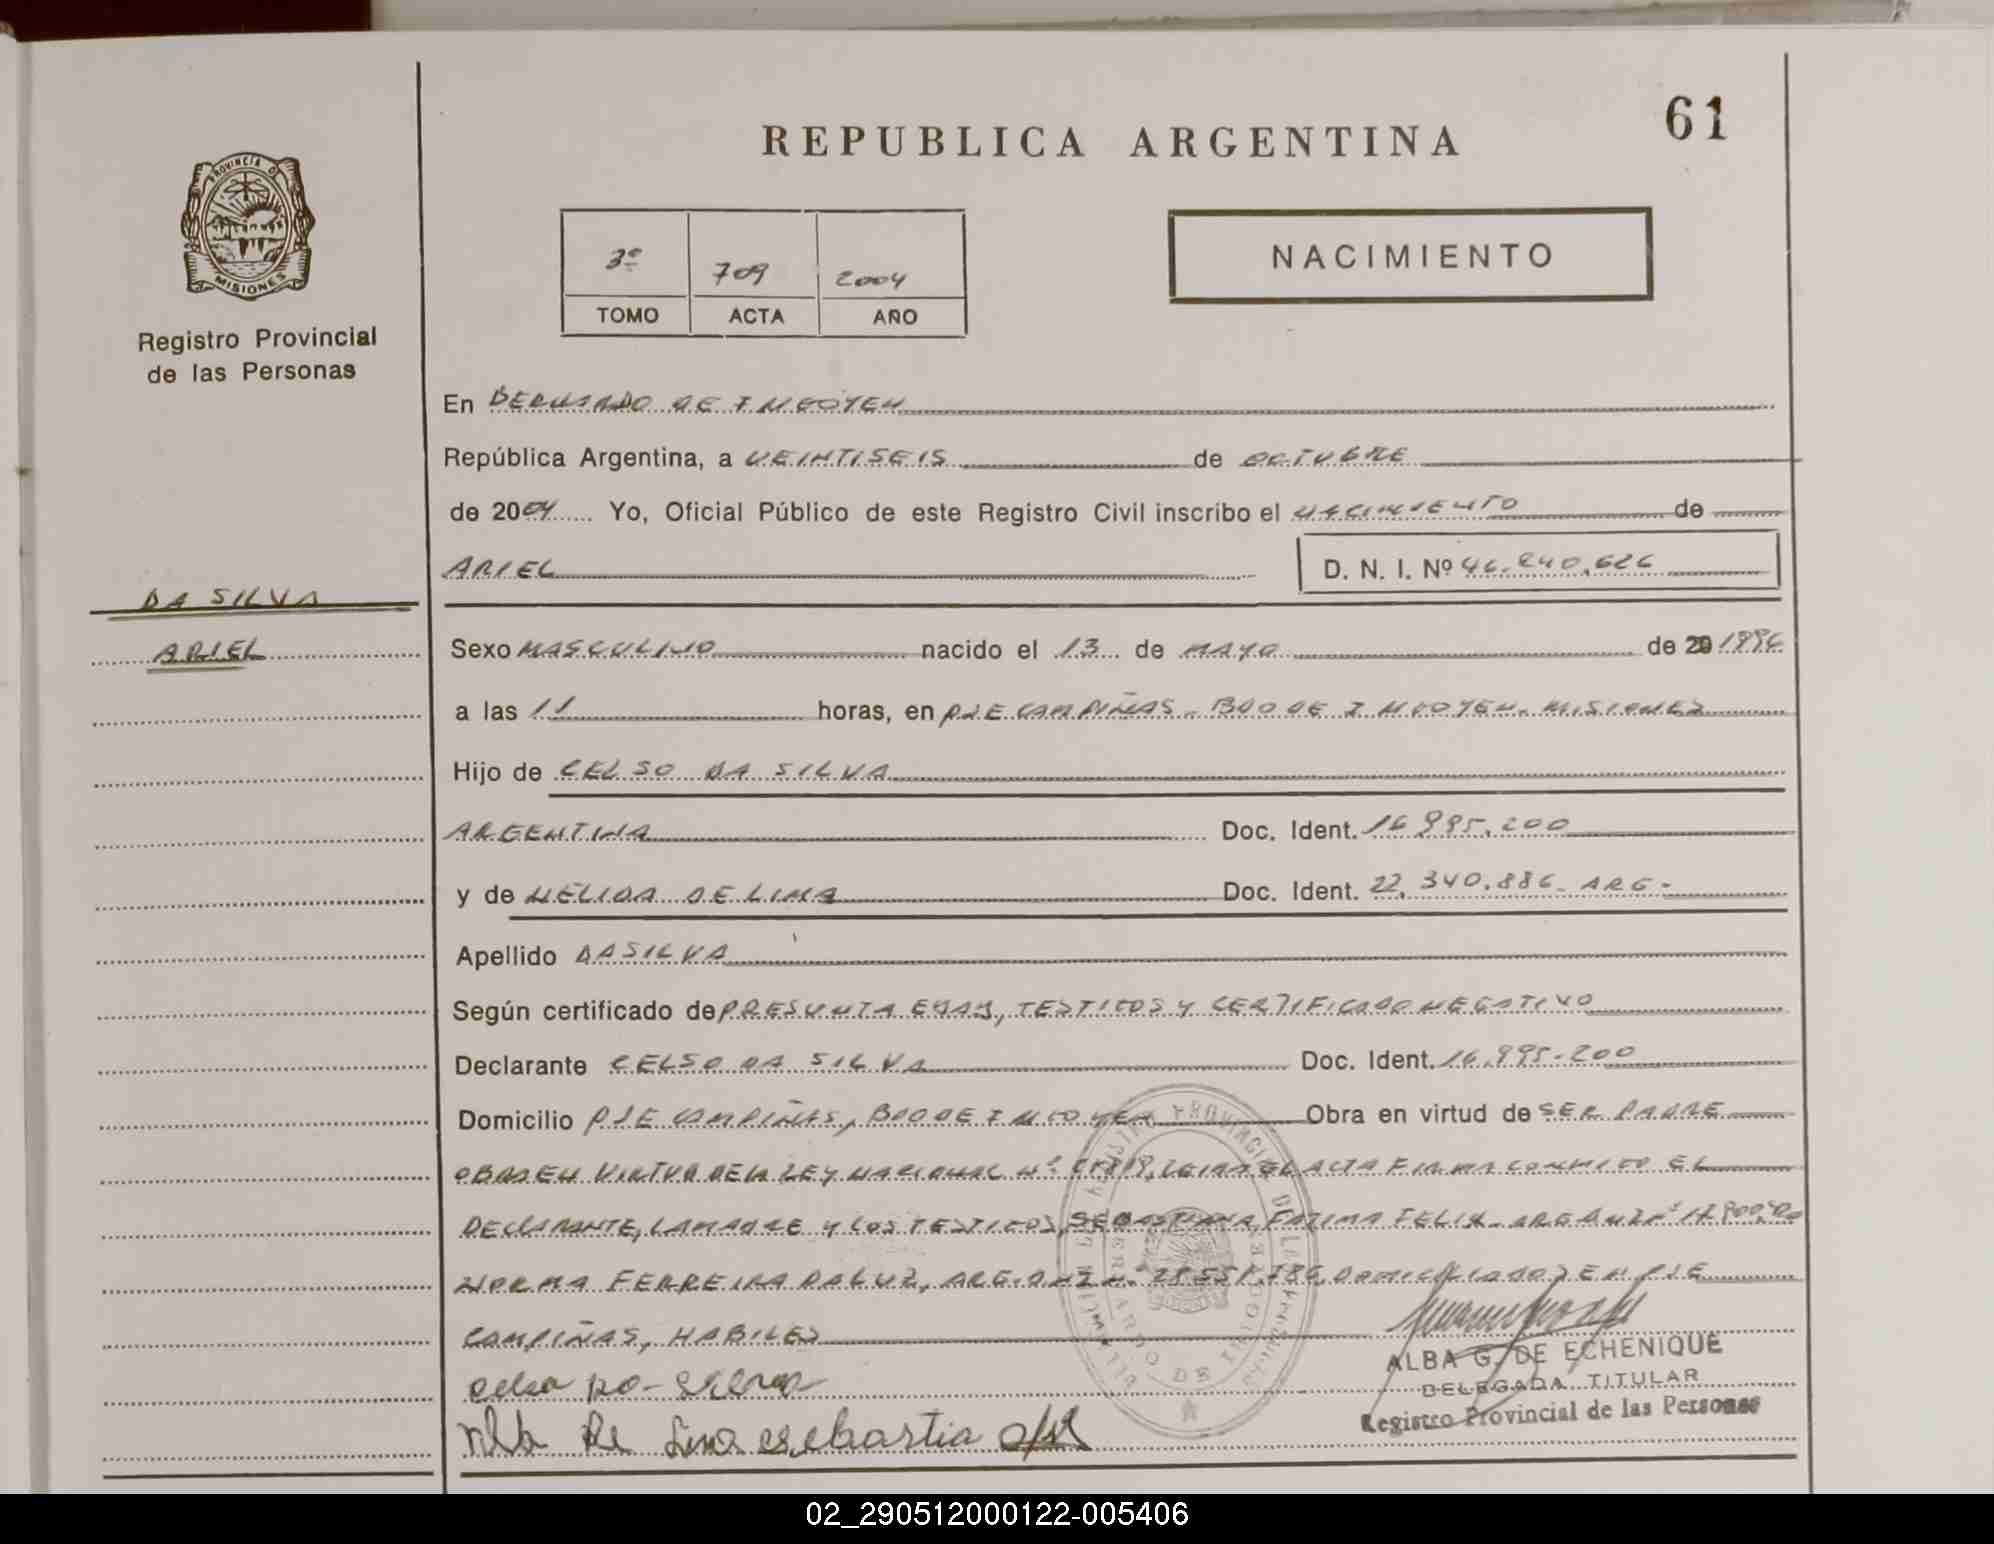 61
REPUBLICA ARGENTINA
PROVINCIA DE
MISIONES
Registro Provincial
de las Personas
NACIMIENTO
3º 709 2004
TOMO ACTA AÑO
En BERNARDO DE IRIGOYEN
República Argentina, a VEINTISEIS de OCTUBRE
de 2004 Yo, Oficial Público de este Registro Civil inscribo el NACIMIENTO de
ARIEL D. N. I. Nº 46.240.626
DA SILVA
ARIEL
Sexo MASCULINO nacido el 13 de MAYO de 20 1996
a las 11 horas, en PJE CAMPIÑAS - BDO DE IRIGOYEN - MISIONES
Hijo de CELSO DA SILVA
ARGENTINA Doc. Ident. 16.995.200
y de NELIDA DE LIMA Doc. Ident. 22.340.886 - ARG -
Apellido DA SILVA
Según certificado de PRESUNTA EDAD, TESTIGOS Y CERTIFICADO NEGATIVO
Declarante CELSO DA SILVA Doc. Ident. 16.995.200
Domicilio PJE CAMPIÑAS, BDO DE IRIGOYEN Obra en virtud de SER PADRE
OBRA EN VIRTUD DE LA LEY NACIONAL Nº LEIDA EL ACTA FIRMA CONMIGO EL
DECLARANTE, LA MADRE Y LOS TESTIGOS, SEBASTIANA FATIMA FELIX - ARG DNI Nº
NORMA FERREIRA DA LUZ, ARG. DNI Nº DOMICILIADOS EN PJE
CAMPIÑAS, HABILES
De Lima sebastia
ALBA G. DE ECHENIQUE
DELEGADA TITULAR
Registro Provincial de las Personas
02_290512000122-005406